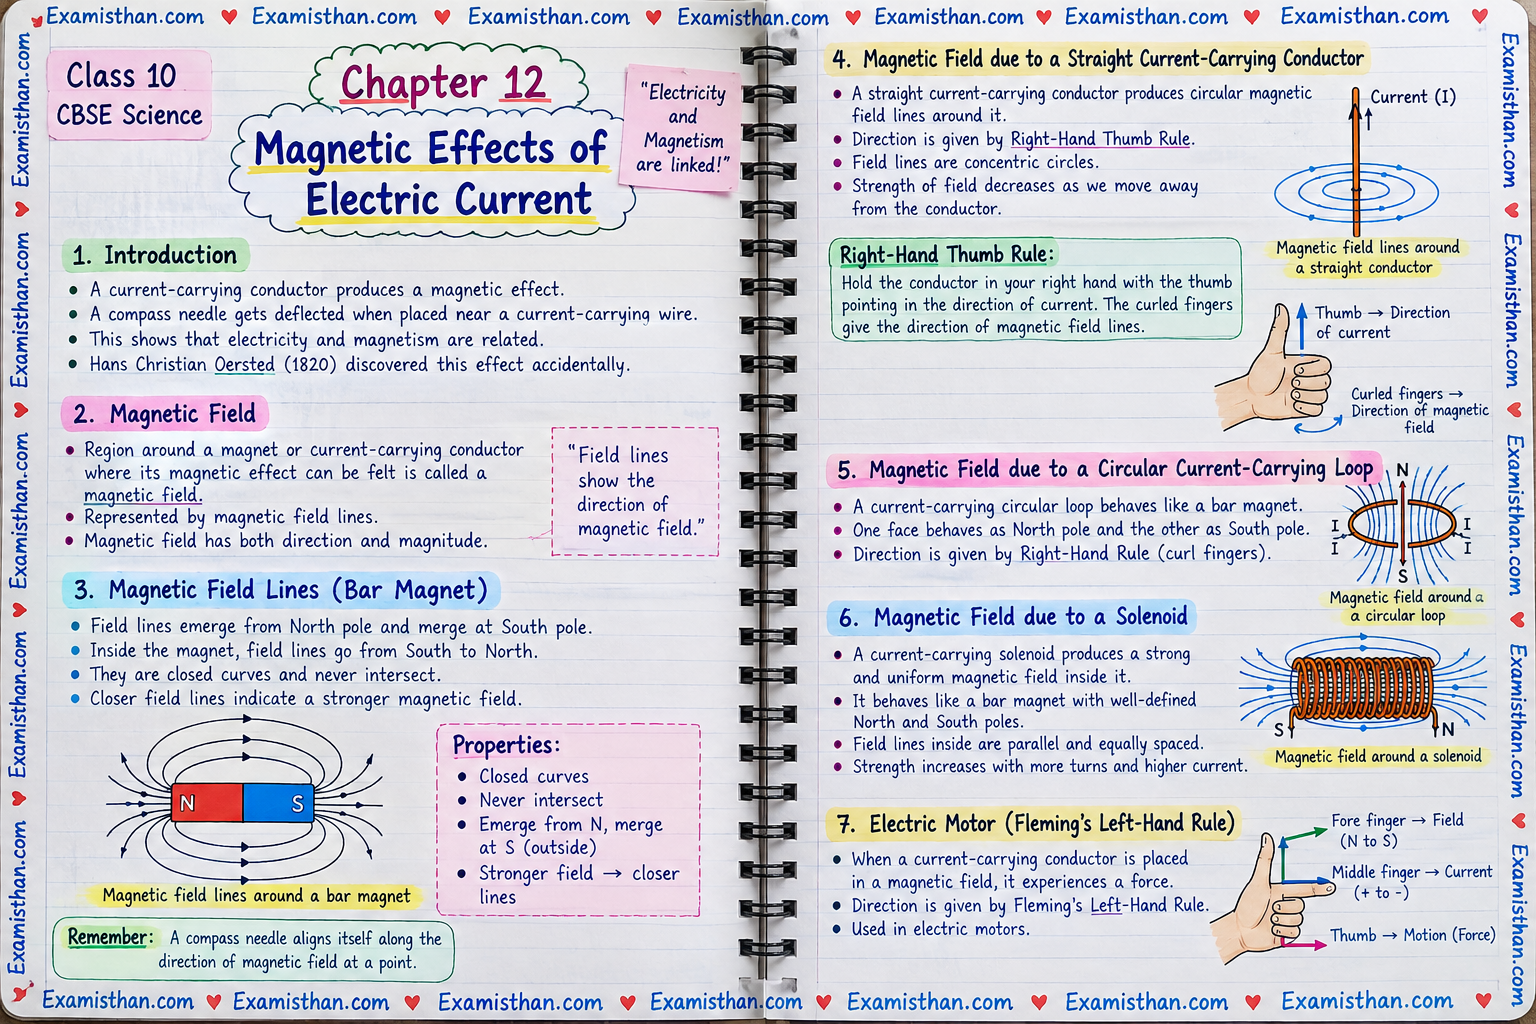 Examisthan.com Examisthan.com Examisthan.com Examisthan.com Examisthan.com Examisthan.com Examisthan.com
Examisthan.com
Examisthan.com
Examisthan.com
Examisthan.com
Examisthan.com
Class 10
CBSE Science
Chapter 12
Magnetic Effects of
Electric Current
"Electricity
and
Magnetism
are linked!"
1. Introduction
• A current-carrying conductor produces a magnetic effect.
• A compass needle gets deflected when placed near a current-carrying wire.
• This shows that electricity and magnetism are related.
• Hans Christian Oersted (1820) discovered this effect accidentally.
2. Magnetic Field
• Region around a magnet or current-carrying conductor
where its magnetic effect can be felt is called a
magnetic field.
• Represented by magnetic field lines.
• Magnetic field has both direction and magnitude.
"Field lines
show the
direction of
magnetic field."
3. Magnetic Field Lines (Bar Magnet)
• Field lines emerge from North pole and merge at South pole.
• Inside the magnet, field lines go from South to North.
• They are closed curves and never intersect.
• Closer field lines indicate a stronger magnetic field.
N S
Magnetic field lines around a bar magnet
Properties:
• Closed curves
• Never intersect
• Emerge from N, merge
at S (outside)
• Stronger field → closer
lines
Remember: A compass needle aligns itself along the
direction of magnetic field at a point.
4. Magnetic Field due to a Straight Current-Carrying Conductor
• A straight current-carrying conductor produces circular magnetic
field lines around it.
• Direction is given by Right-Hand Thumb Rule.
• Field lines are concentric circles.
• Strength of field decreases as we move away
from the conductor.
Current (I)
Magnetic field lines around
a straight conductor
Right-Hand Thumb Rule:
Hold the conductor in your right hand with the thumb
pointing in the direction of current. The curled fingers
give the direction of magnetic field lines.
Thumb → Direction
of current
Curled fingers →
Direction of magnetic
field
5. Magnetic Field due to a Circular Current-Carrying Loop
• A current-carrying circular loop behaves like a bar magnet.
• One face behaves as North pole and the other as South pole.
• Direction is given by Right-Hand Rule (curl fingers).
N
I I
I I
S
Magnetic field around a
a circular loop
6. Magnetic Field due to a Solenoid
• A current-carrying solenoid produces a strong
and uniform magnetic field inside it.
• It behaves like a bar magnet with well-defined
North and South poles.
• Field lines inside are parallel and equally spaced.
• Strength increases with more turns and higher current.
S N
Magnetic field around a solenoid
7. Electric Motor (Fleming's Left-Hand Rule)
• When a current-carrying conductor is placed
in a magnetic field, it experiences a force.
• Direction is given by Fleming's Left-Hand Rule.
• Used in electric motors.
Fore finger → Field
(N to S)
Middle finger → Current
(+ to -)
Thumb → Motion (Force)
Examisthan.com
Examisthan.com
Examisthan.com
Examisthan.com
Examisthan.com
Examisthan.com Examisthan.com Examisthan.com Examisthan.com Examisthan.com Examisthan.com Examisthan.com